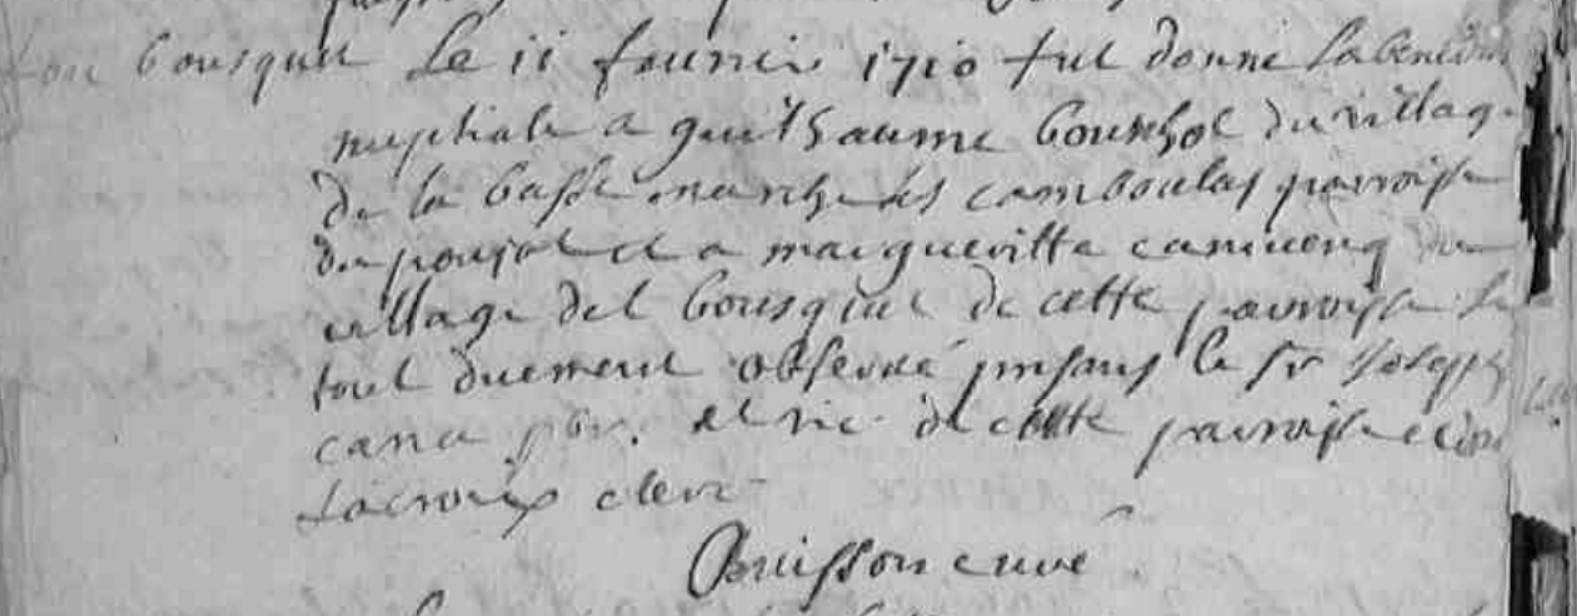 bousquet Le 11 feurier 1710 fut donné la benedon
nuptiale a guilhaume bourhol du village
de la basse marche de camboulas parroisse
du poujol et a margueritte canuong du
village del bousquet de cette parroisse le
tout duement observé presans le sr Joseph
canet pbr. et vic. de cette parroisse et
Lacroix clerc
Buisson curé